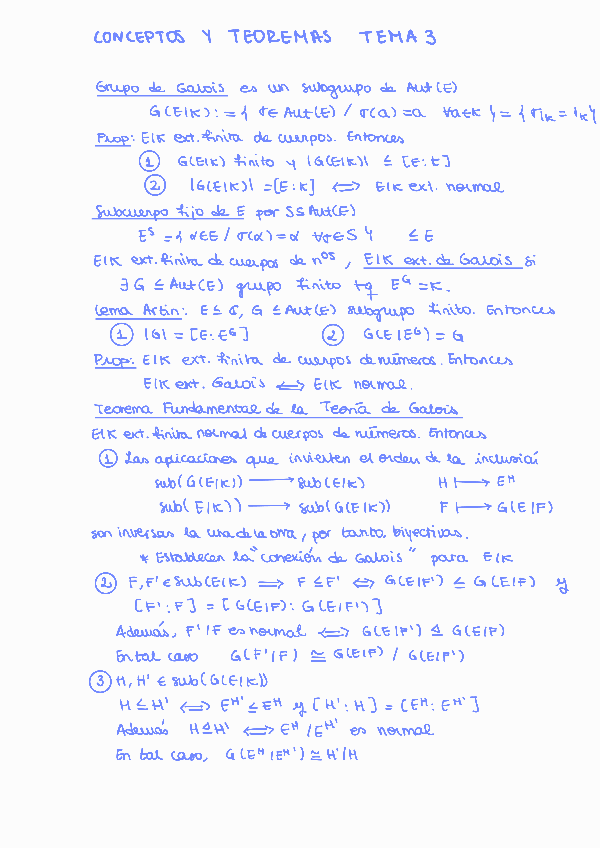 CONCEPTOS Y TEOREMAS TEMA 3
Grupo de Galois es un subgrupo de Aut(E)
G(E|K) := { σ ∈ Aut(E) / σ(a) = a ∀a∈K } = { σ|K = 1K }
Prop: E|K ext. finita de cuerpos. Entonces
① G(E|K) finito y |G(E|K)| ≤ [E:K]
② |G(E|K)| = [E:K] ⟺ E|K ext. normal
Subcuerpo fijo de E por S ≤ Aut(E)
E^S = { α∈E / σ(α) = α ∀σ∈S } ≤ E
E|K ext. finita de cuerpos de nºs, E|K ext. de Galois si
∃ G ≤ Aut(E) grupo finito tq E^G = K.
Lema Artin: E ≤ ℂ, G ≤ Aut(E) subgrupo finito. Entonces
① |G| = [E:E^G] ② G(E|E^G) = G
Prop: E|K ext. finita de cuerpos de números. Entonces
E|K ext. Galois ⟺ E|K normal.
Teorema Fundamental de la Teoría de Galois
E|K ext. finita normal de cuerpos de números. Entonces
① Las aplicaciones que invierten el orden de la inclusión
sub(G(E|K)) ⟶ sub(E|K) H ⟼ E^H
sub(E|K)) ⟶ sub(G(E|K)) F ⟼ G(E|F)
son inversas la una de la otra, por tanto, biyectivas.
* Establecen la "conexión de Galois" para E|K
② F, F' ∈ sub(E|K) ⟹ F ≤ F' ⟺ G(E|F') ≤ G(E|F) y
[F':F] = [G(E|F) : G(E|F')]
Además, F'|F es normal ⟺ G(E|F') ⊴ G(E|F)
En tal caso G(F'|F) ≅ G(E|F) / G(E|F')
③ H, H' ∈ sub(G(E|K))
H ≤ H' ⟺ E^H' ≤ E^H y [H':H] = [E^H : E^H']
Además H ⊴ H' ⟺ E^H | E^H' es normal
En tal caso, G(E^H | E^H') ≅ H'/H